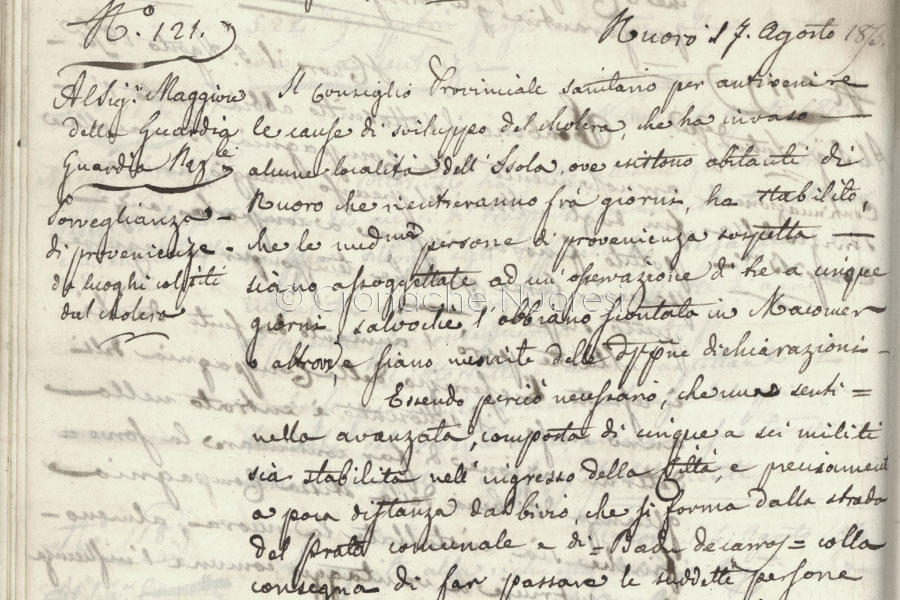 N.° 121.
Nuoro, 17. Agosto 185
Al Sig.r Maggiore
della Guardia
Guardia Nzle
Sorveglianza
di provenienze
da luoghi colpiti
dal cholera
Il Consiglio Provinciale sanitario per antivenire
le cause di sviluppo del cholera, che ha invaso
alcune località dell'Isola, ove esistono abitanti di
Nuoro che rientreranno frà giorni, ha stabilito,
che le medme persone di provenienza sospetta
siano assoggettate ad un'osservazione di tre a cinque
giorni salvochè l'abbiano scontata in Macomer
o altrove, e siano munite delle dichiarazioni
Essendo perciò necessario, che una senti=
nella avanzata, composta di cinque a sei militi
sia stabilita nell'ingresso della Città, e precisament
a poca distanza dal bivio, che si forma dalla strada
del prato comunale e di = Badu de carros = colla
consegna di far passare le suddette persone
© Cronache Nuoresi